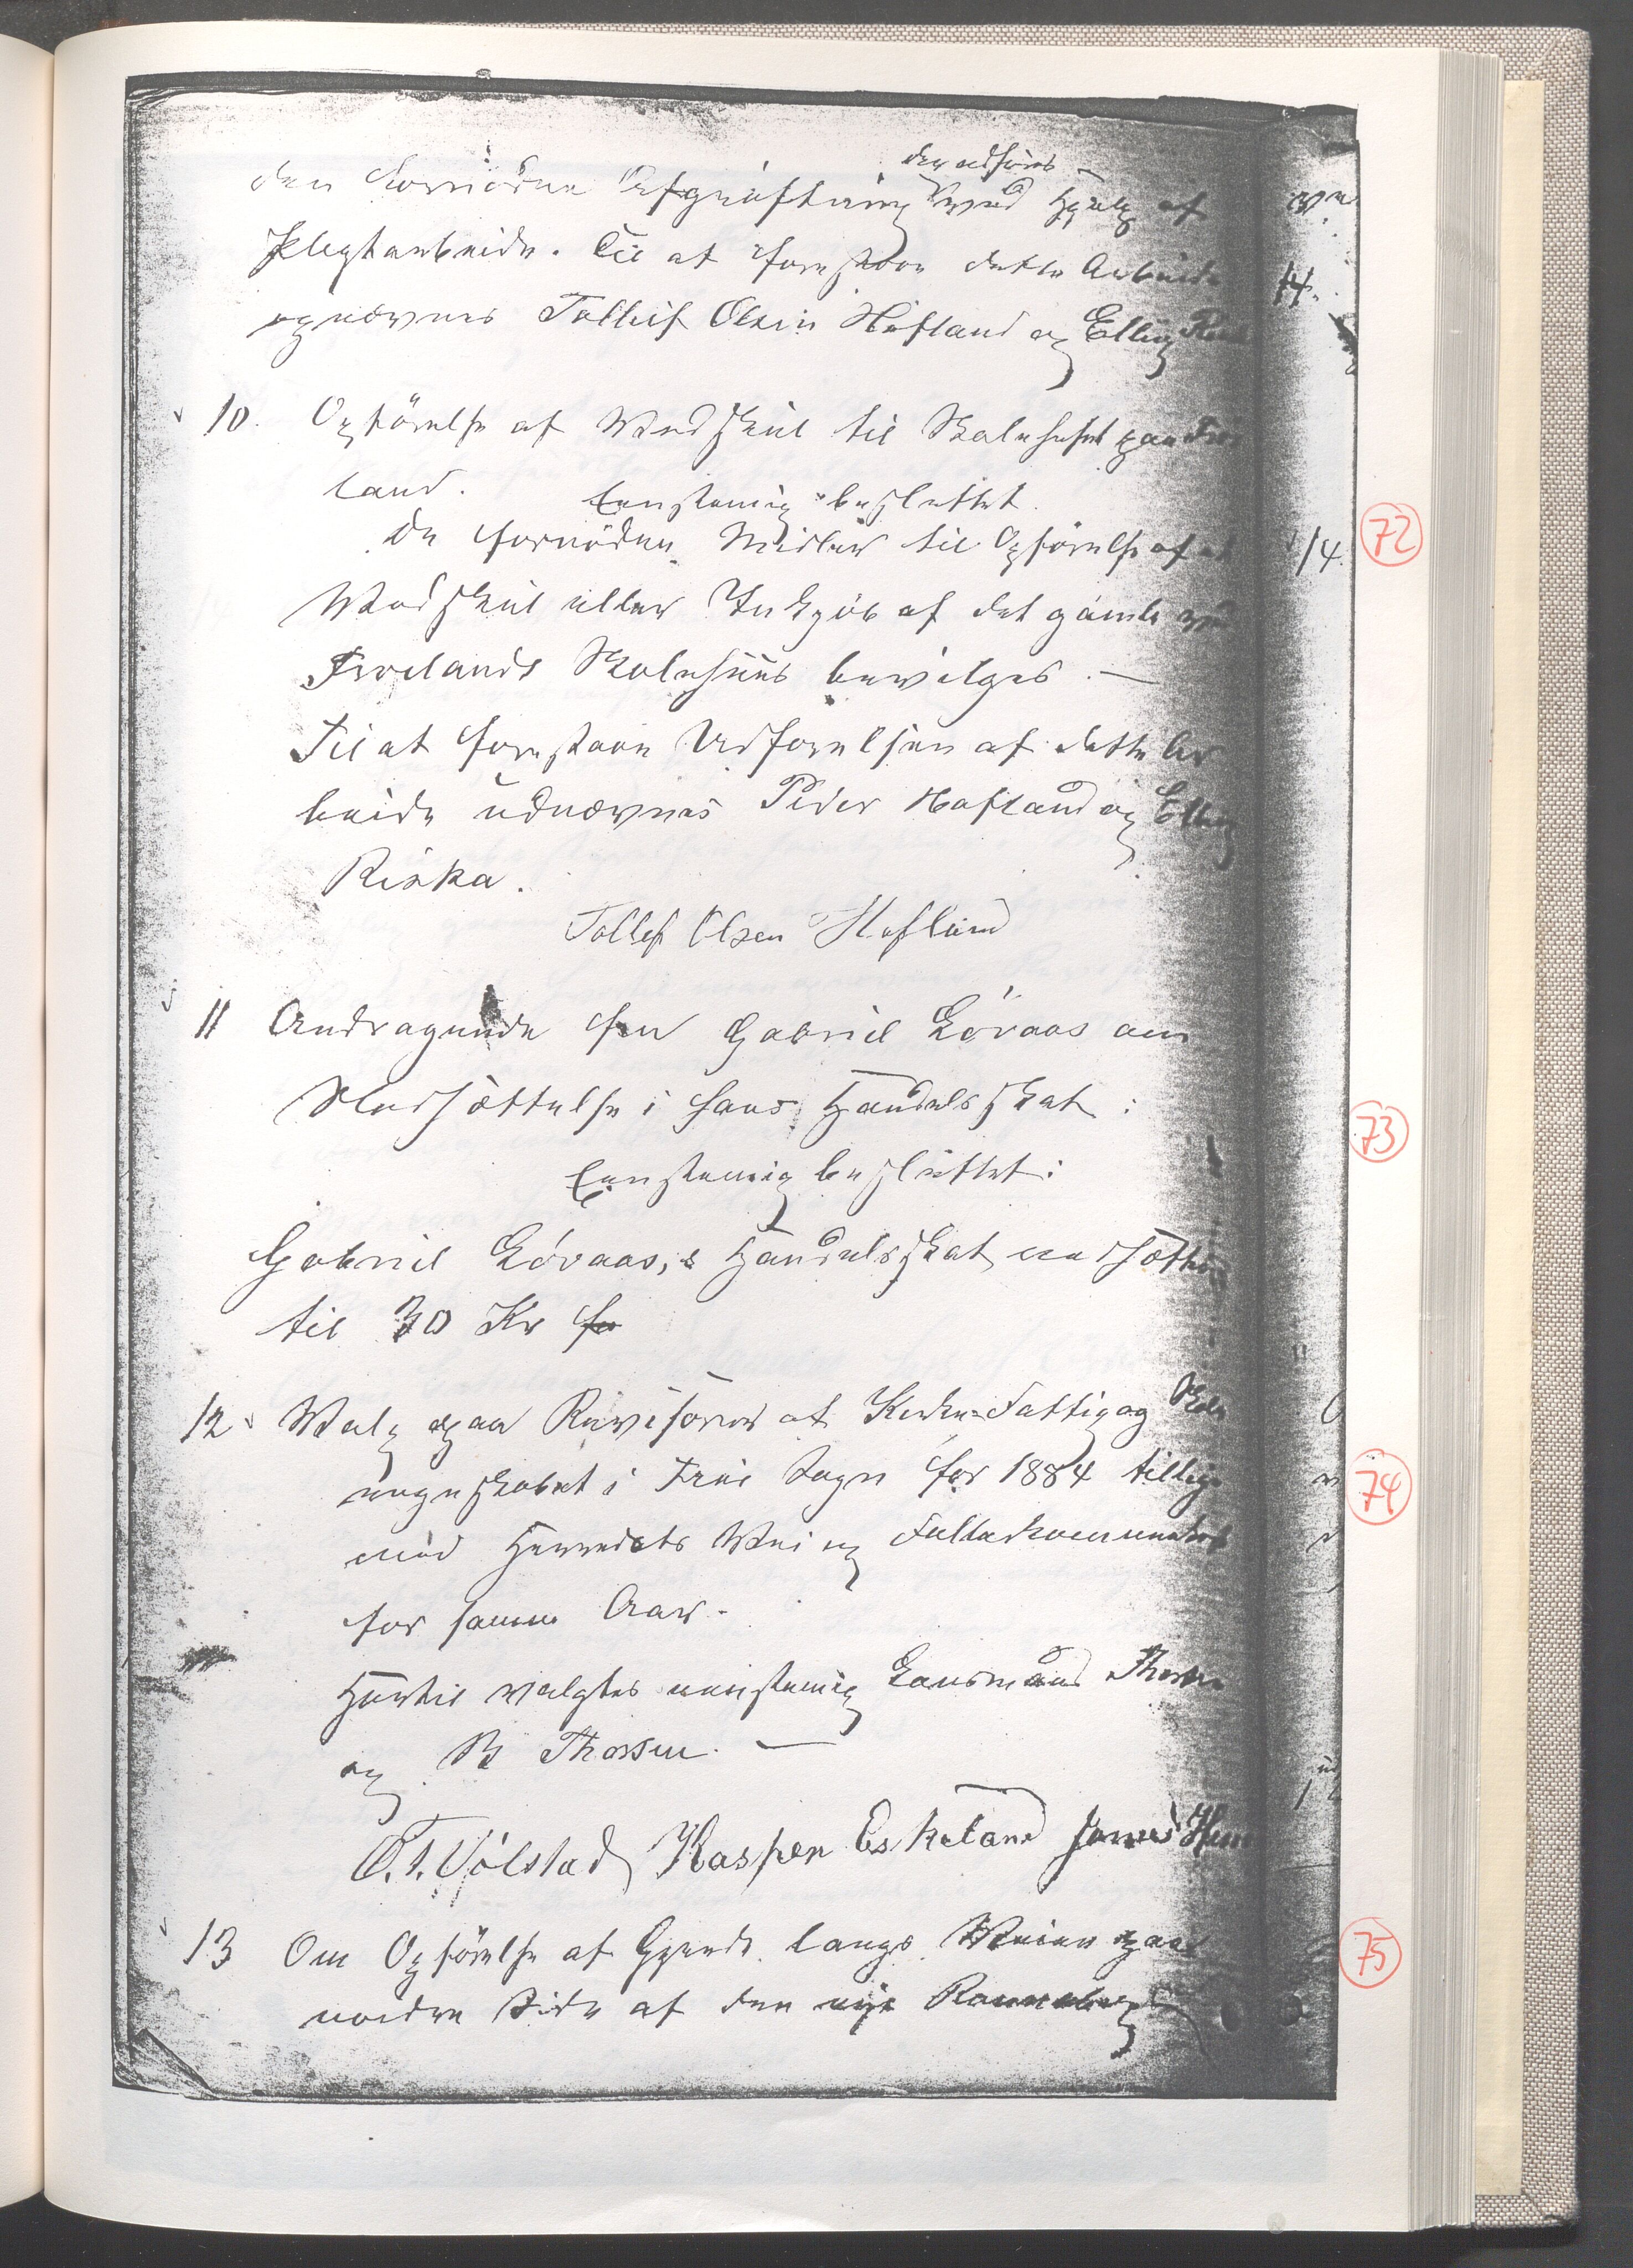 der udføres
den fornødne Afgrøftning ved Hjælp af
Pligtarbeide. Til at forestaae dette Arbeide
opnævnes Tollef Olsen Hafland og Elling
10. Opførelse af Vedskul til Skolehuset paa Fro
land.
Eenstemig besluttet.
De fornødne Midler til Opførelse af et
Vedskul eller Indkjøb af det gamle ved
Frolands Skolehuus bevilges. —
Til at forestaae Udførelsen af dette Ar
beide udnævnes Peder Hafland og Elling
Riska.
Tollef Olsen Hafland
11 Andragende fra Gabriel Lövaas om
Nedsættelse i hans Handelsskat:
Eenstemig besluttet:
Gabriel Lövaas,s Handelsskat nedsættes
til 30 Kr
12 Valg paa Revisorer af Kirke- Fattig og Skole
regnskabet i Sogn for 1884 tillige
med Herredets Vei og
for samme Aar.
Hertil valgtes eenstemig Lensmand
og B Thorsen. —
O. T. Völstad Kasper Eskeland
13 Om Opførelse af Gjerde langs Veien paa
nordre Side af den nye
72
73
74
75